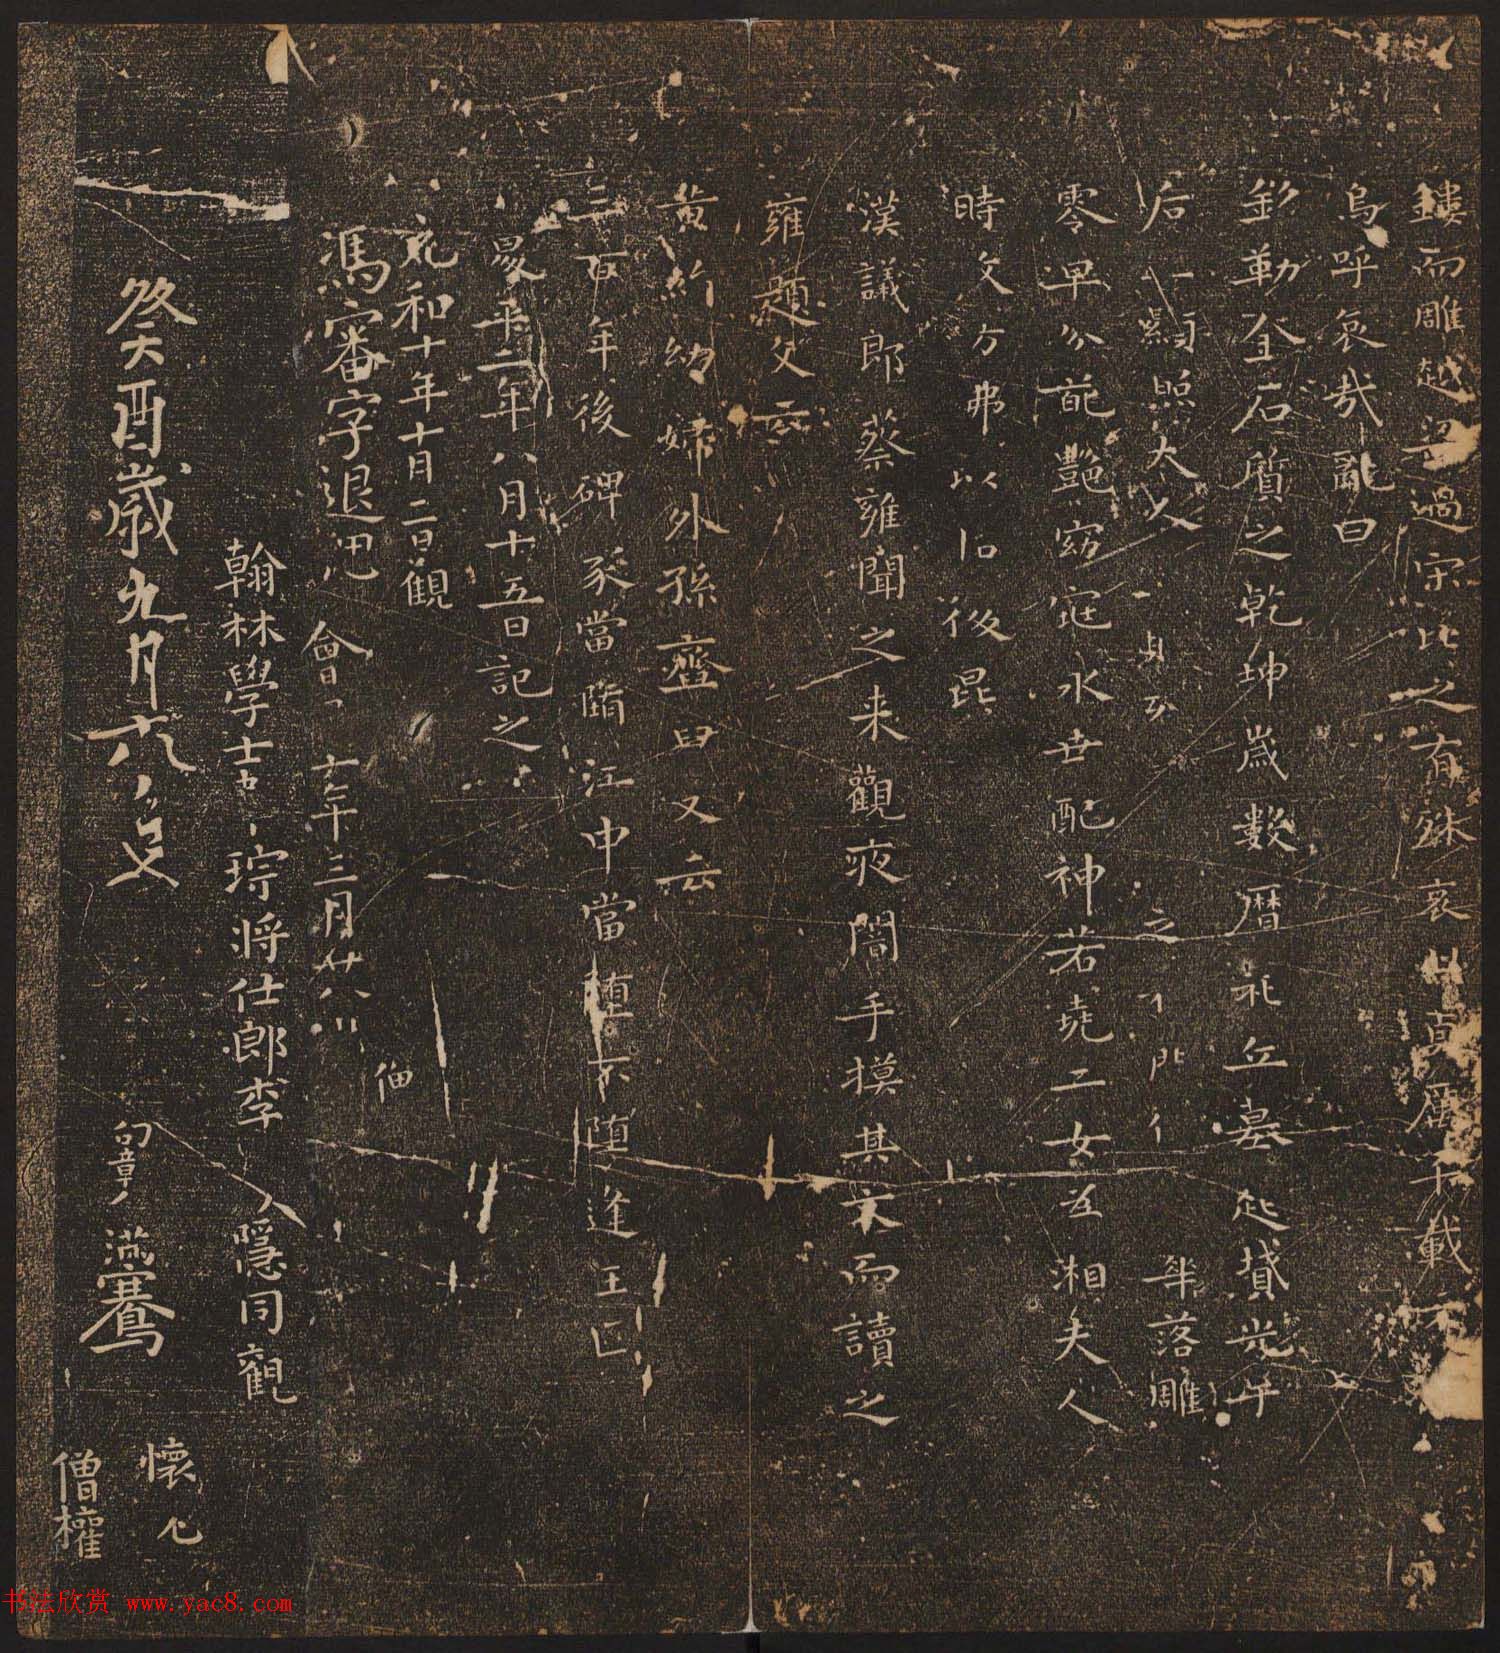 鏤而雕越梁過宋比之有殊哀此貞厲千載不
嗚呼哀哉亂曰
彩勒金石質之乾坤歲數曆祀丘墓起墳光于
后 顯照夫 落雕
零早分葩豔窈窕永世配神若堯二女為湘夫人
時 以 後昆
漢議郎蔡雍聞之来觀夜闇手摸其文而讀之
雍題文云
黃絹幼婦外孫齏臼又云
三百年後碑冢當墮江中當墮不墮逢王叵
昇平二年八月十五日記之
元和十年十月二日觀
馮審字退思 會 年三月廿八
翰林學士 琮將仕郎李 隱同觀
癸酉歲九月六
滿騫
懷
僧權
书法欣赏 www.yac8.com